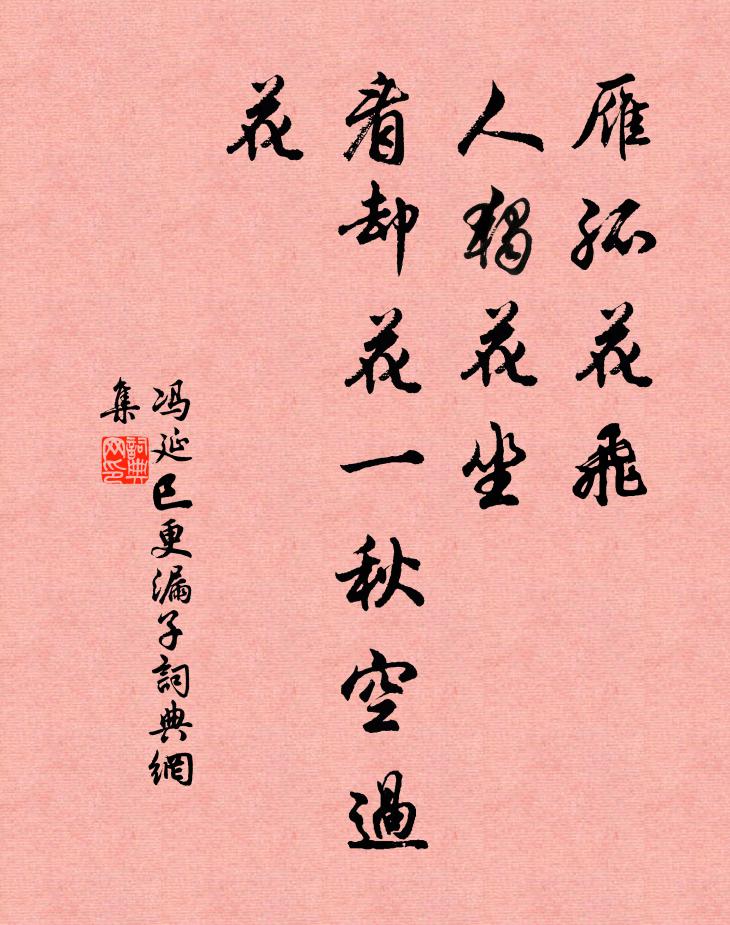 雁孤花飛
人獨花坐
看却花一秋空過
花
馮延巳更漏子詞典網
集
詞典
网印